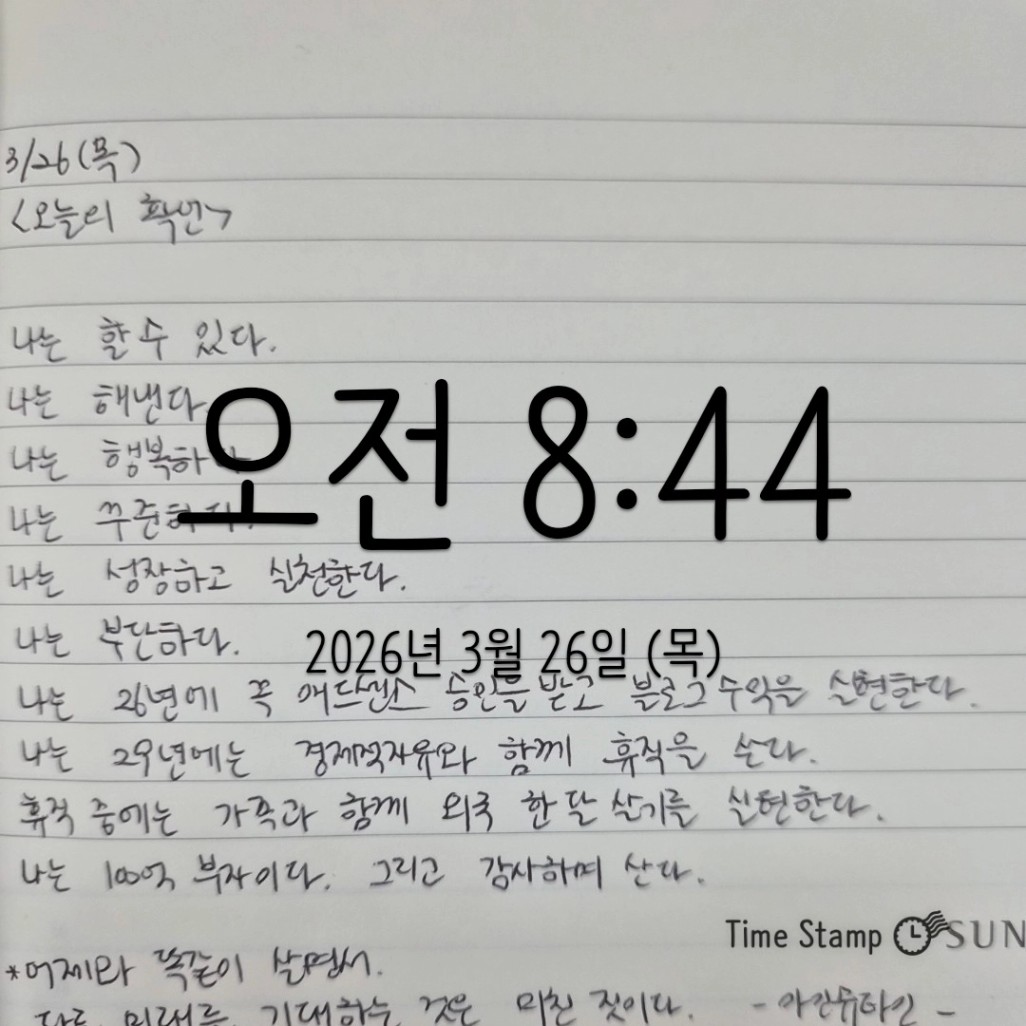 3/26(목)
<오늘의 확언>
나는 할 수 있다.
나는 해낸다.
오전 8:44
나는 행복하다
나는 꾸준하다.
나는 성장하고 실천한다.
나는 부단하다.
2026년 3월 26일 (목)
나는 26년에 꼭 애드센스 승인을 받고 블로그 수익을 실현한다.
나는 29년에는 경제적자유와 함께 휴직을 쓴다.
휴직 중에는 가족과 함께 외국 한 달 살기를 실현한다.
나는 100억 부자이다. 그리고 감사하며 산다.
Time Stamp SUN
*어제와 똑같이 살면서.
다른 미래를 기대하는 것은 미친 짓이다. -아인슈타인-